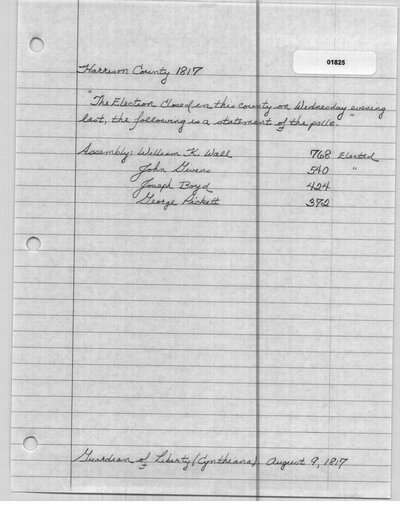 01825
Harrison County 1817
"The Election closed in this county on Wednesday evening
last, the following is a statement of the polls."
Assembly: William K. Wall 768 Elected
John Givens 540 "
Joseph Boyd 424
George Pickett 372
Guardian of Liberty (Cynthiana) August 9, 1817